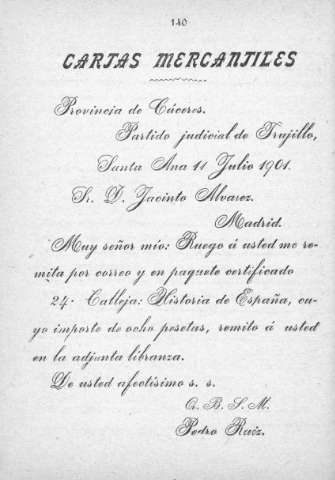 140
CARTAS MERCANTILES
Provincia de Cáceres.
Partido judicial de Trujillo,
Santa Ana 11 Julio 1901.
Sr. D. Jacinto Alvarez.
Madrid.
Muy señor mío: Ruego á usted me re-
mita por correo y en paquete certificado
24· Calleja: Historia de España, cu-
yo importe de ocho pesetas, remito á usted
en la adjunta libranza.
De usted afectísimo s. s.
Q. B. S. M.
Pedro Ruiz.